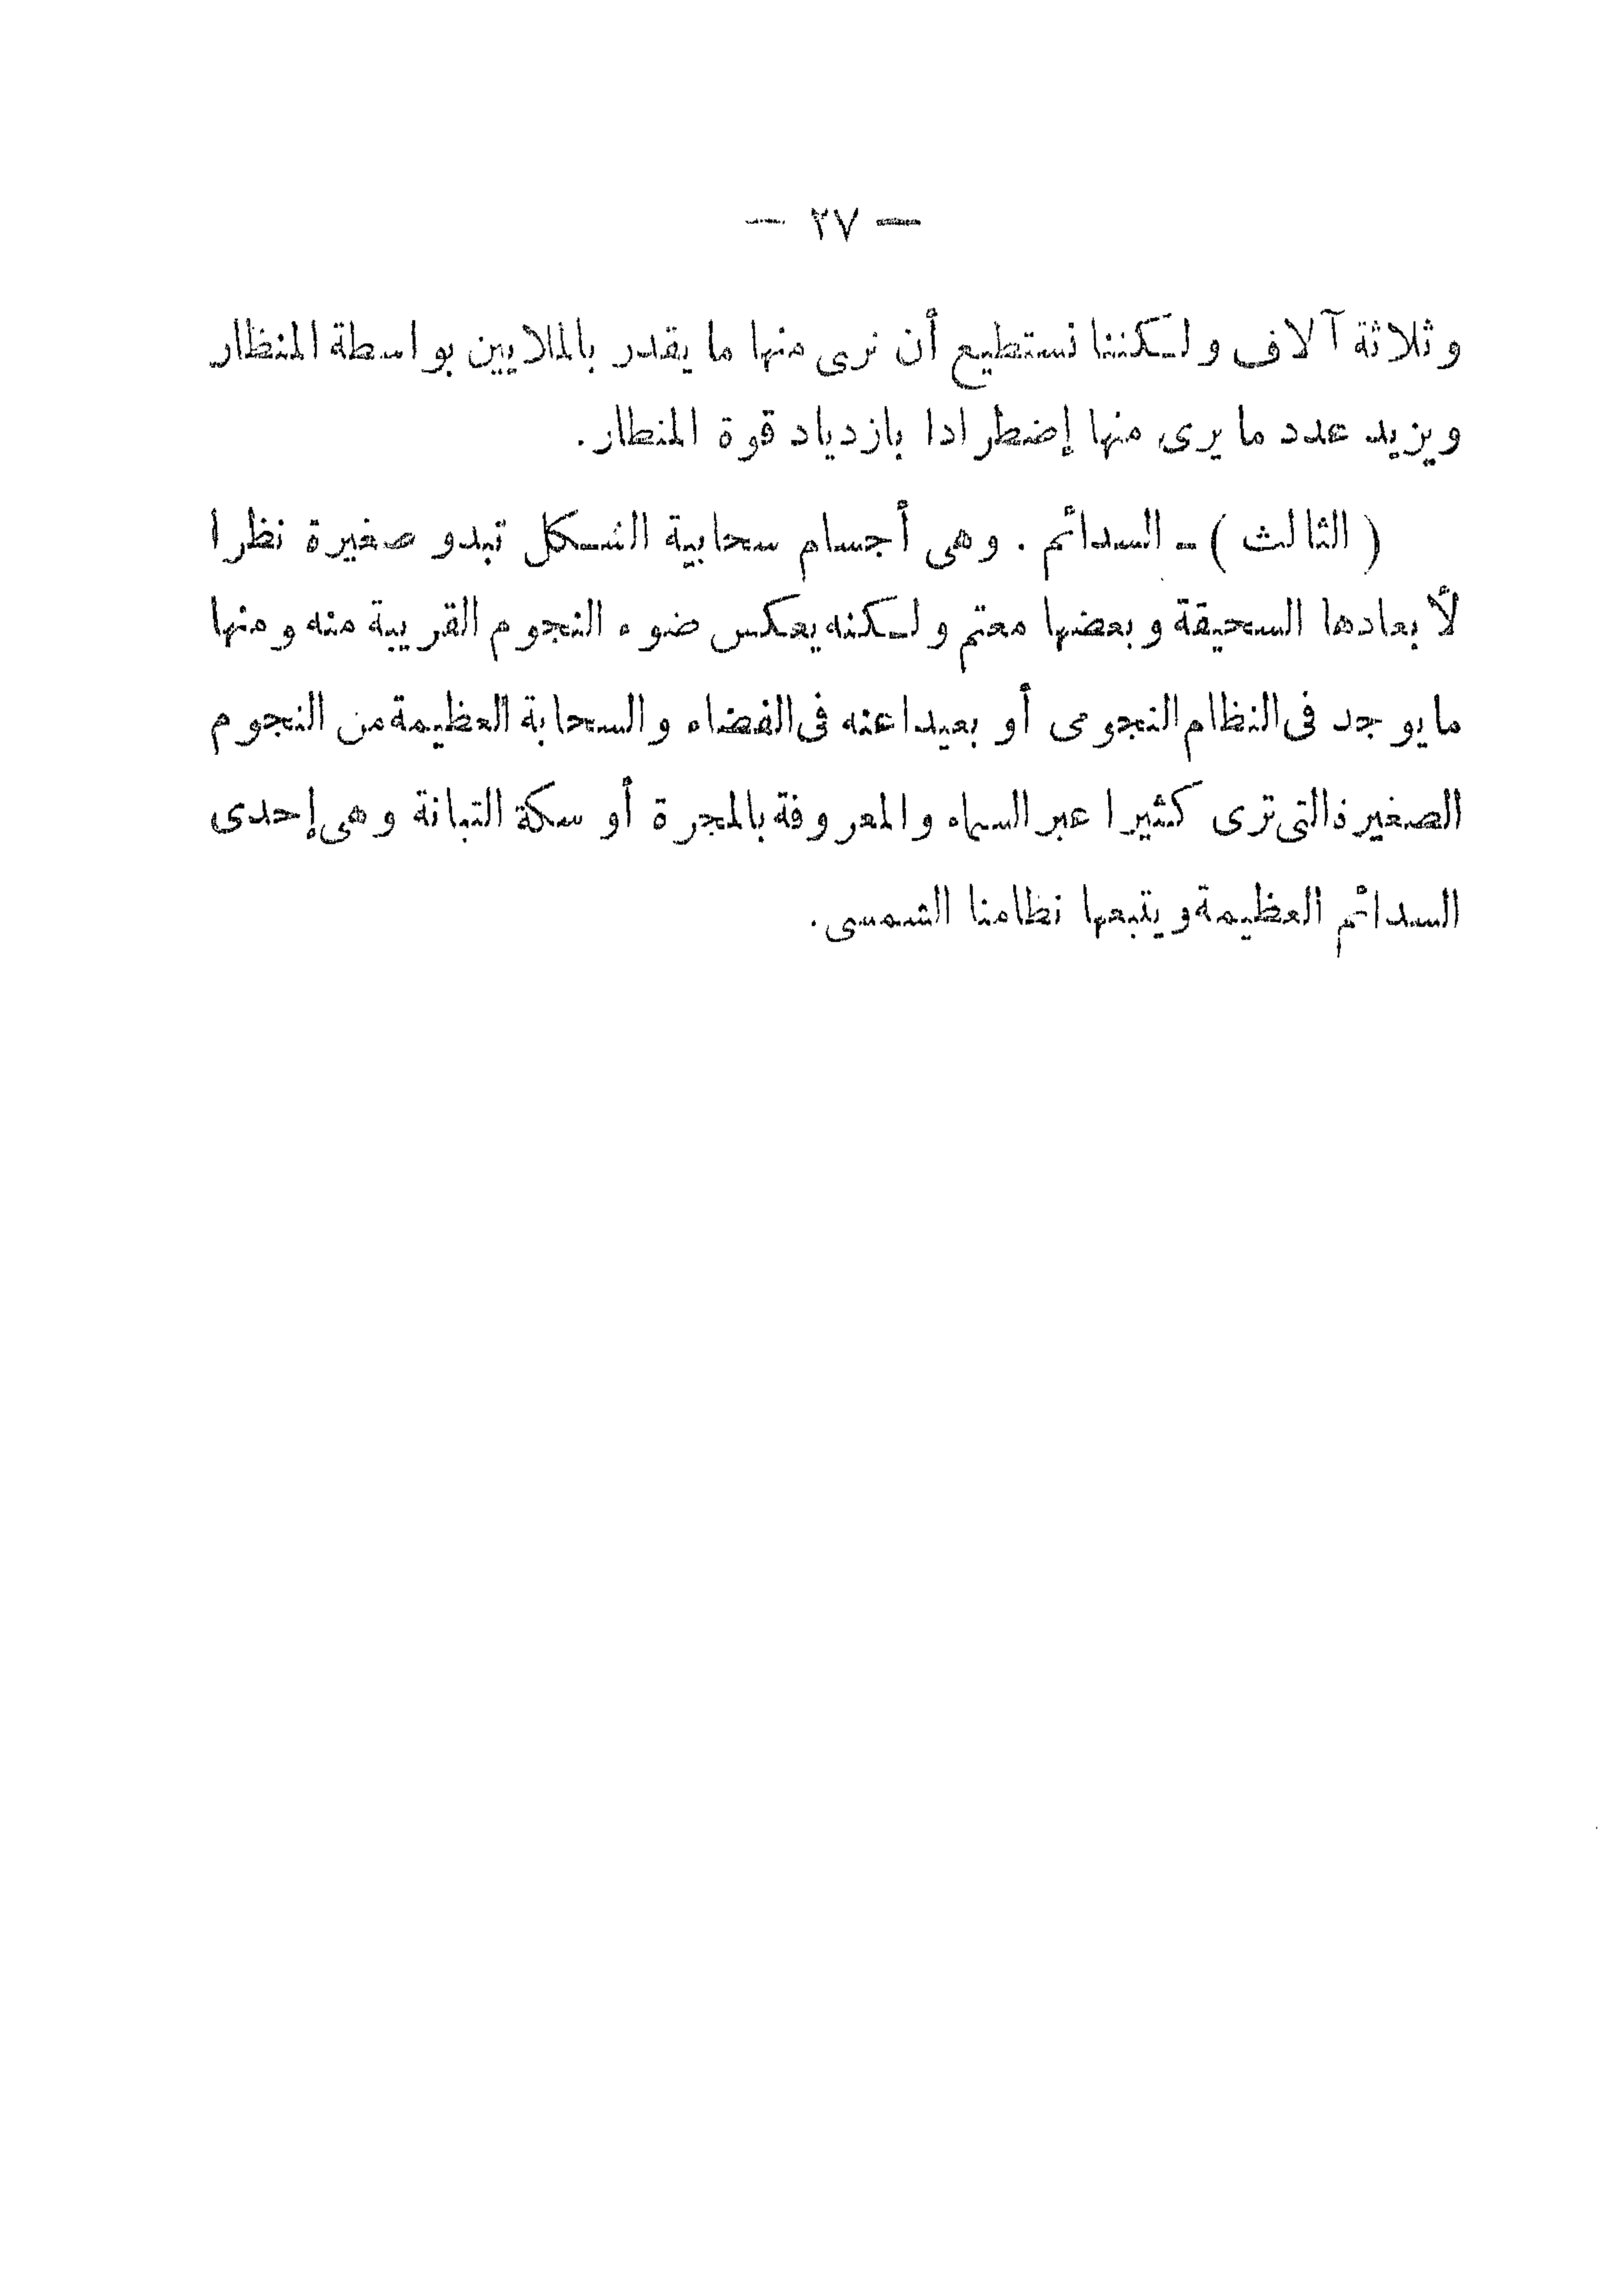 — ٢٧ —
وثلاثة آلاف ولكننا نستطيع أن نرى منها ما يقدر بالملايين بواسطة المنظار
ويزيد عدد ما يرى منها إضطرادا بازدياد قوة المنطار.
( الثالث ) - السدائم . وهى أجسام سحابية الشكل تبدو صغيرة نظرا
لأبعادها السحيقة وبعضها معتم ولكنه يعكس ضوء النجوم القريبة منه ومنها
ما يوجد فى النظام النجومى أو بعيدا عنه فى الفضاء والسحابة العظيمة من النجوم
الصغيرة التى ترى كثيرا عبر السماء والمعروفة بالمجرة أو سكة التبانة وهى إحدى
السدائم العظيمة ويتبعها نظامنا الشمسى.